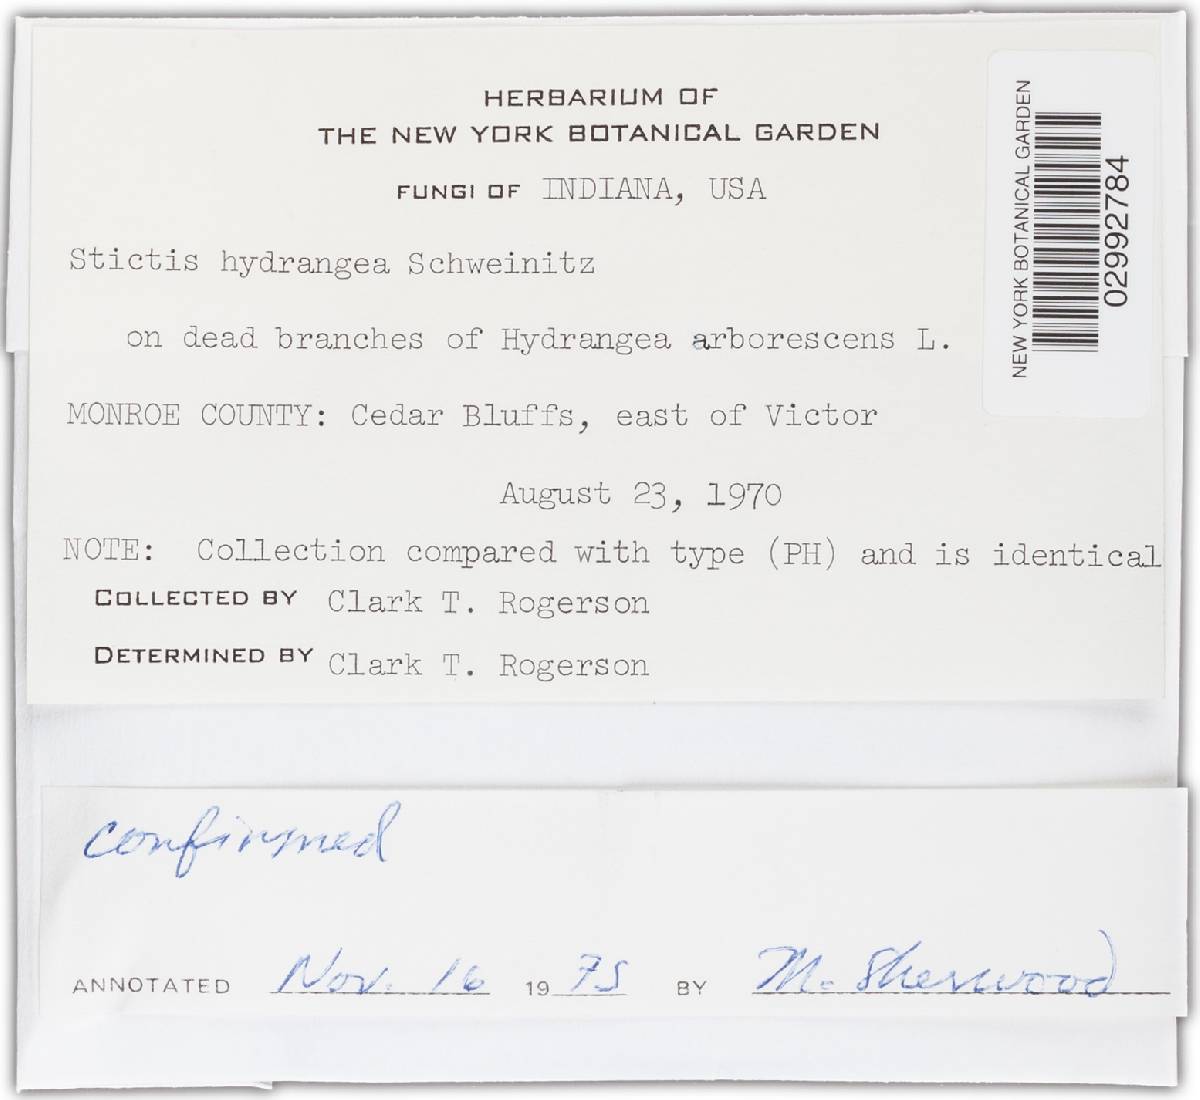 HERBARIUM OF
THE NEW YORK BOTANICAL GARDEN
FUNGI OF INDIANA, USA
Stictis hydrangea Schweinitz
on dead branches of Hydrangea arborescens L.
MONROE COUNTY: Cedar Bluffs, east of Victor
August 23, 1970
NOTE: Collection compared with type (PH) and is identical
COLLECTED BY Clark T. Rogerson
DETERMINED BY Clark T. Rogerson
NEW YORK BOTANICAL GARDEN
02992784
confirmed
ANNOTATED Nov. 16 1975 BY M. Sherwood